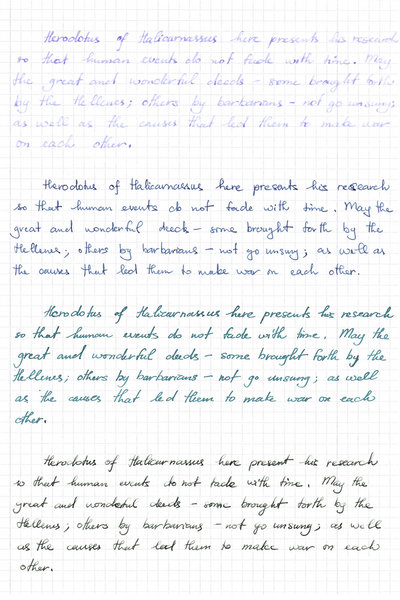 Herodotus of Halicarnassus here presents his research
so that human events do not fade with time. May
the great and wonderful deeds – some brought forth
by the Hellenes; others by barbarians – not go unsung;
as well as the causes that led them to make war
on each other.
Herodotus of Halicarnassus here presents his research
so that human events do not fade with time. May the
great and wonderful deeds – some brought forth by the
Hellenes; others by barbarians – not go unsung; as well as
the causes that led them to make war on each other.
Herodotus of Halicarnassus here presents his research
so that human events do not fade with time. May the
great and wonderful deeds – some brought forth by the
Hellenes; others by barbarians – not go unsung; as well
as the causes that led them to make war on each
other.
Herodotus of Halicarnassus here present his research
so that human events do not fade with time. May the
great and wonderful deeds – some brought forth by the
Hellenes; others by barbarians – not go unsung; as well
as the causes that led them to make war on each
other.